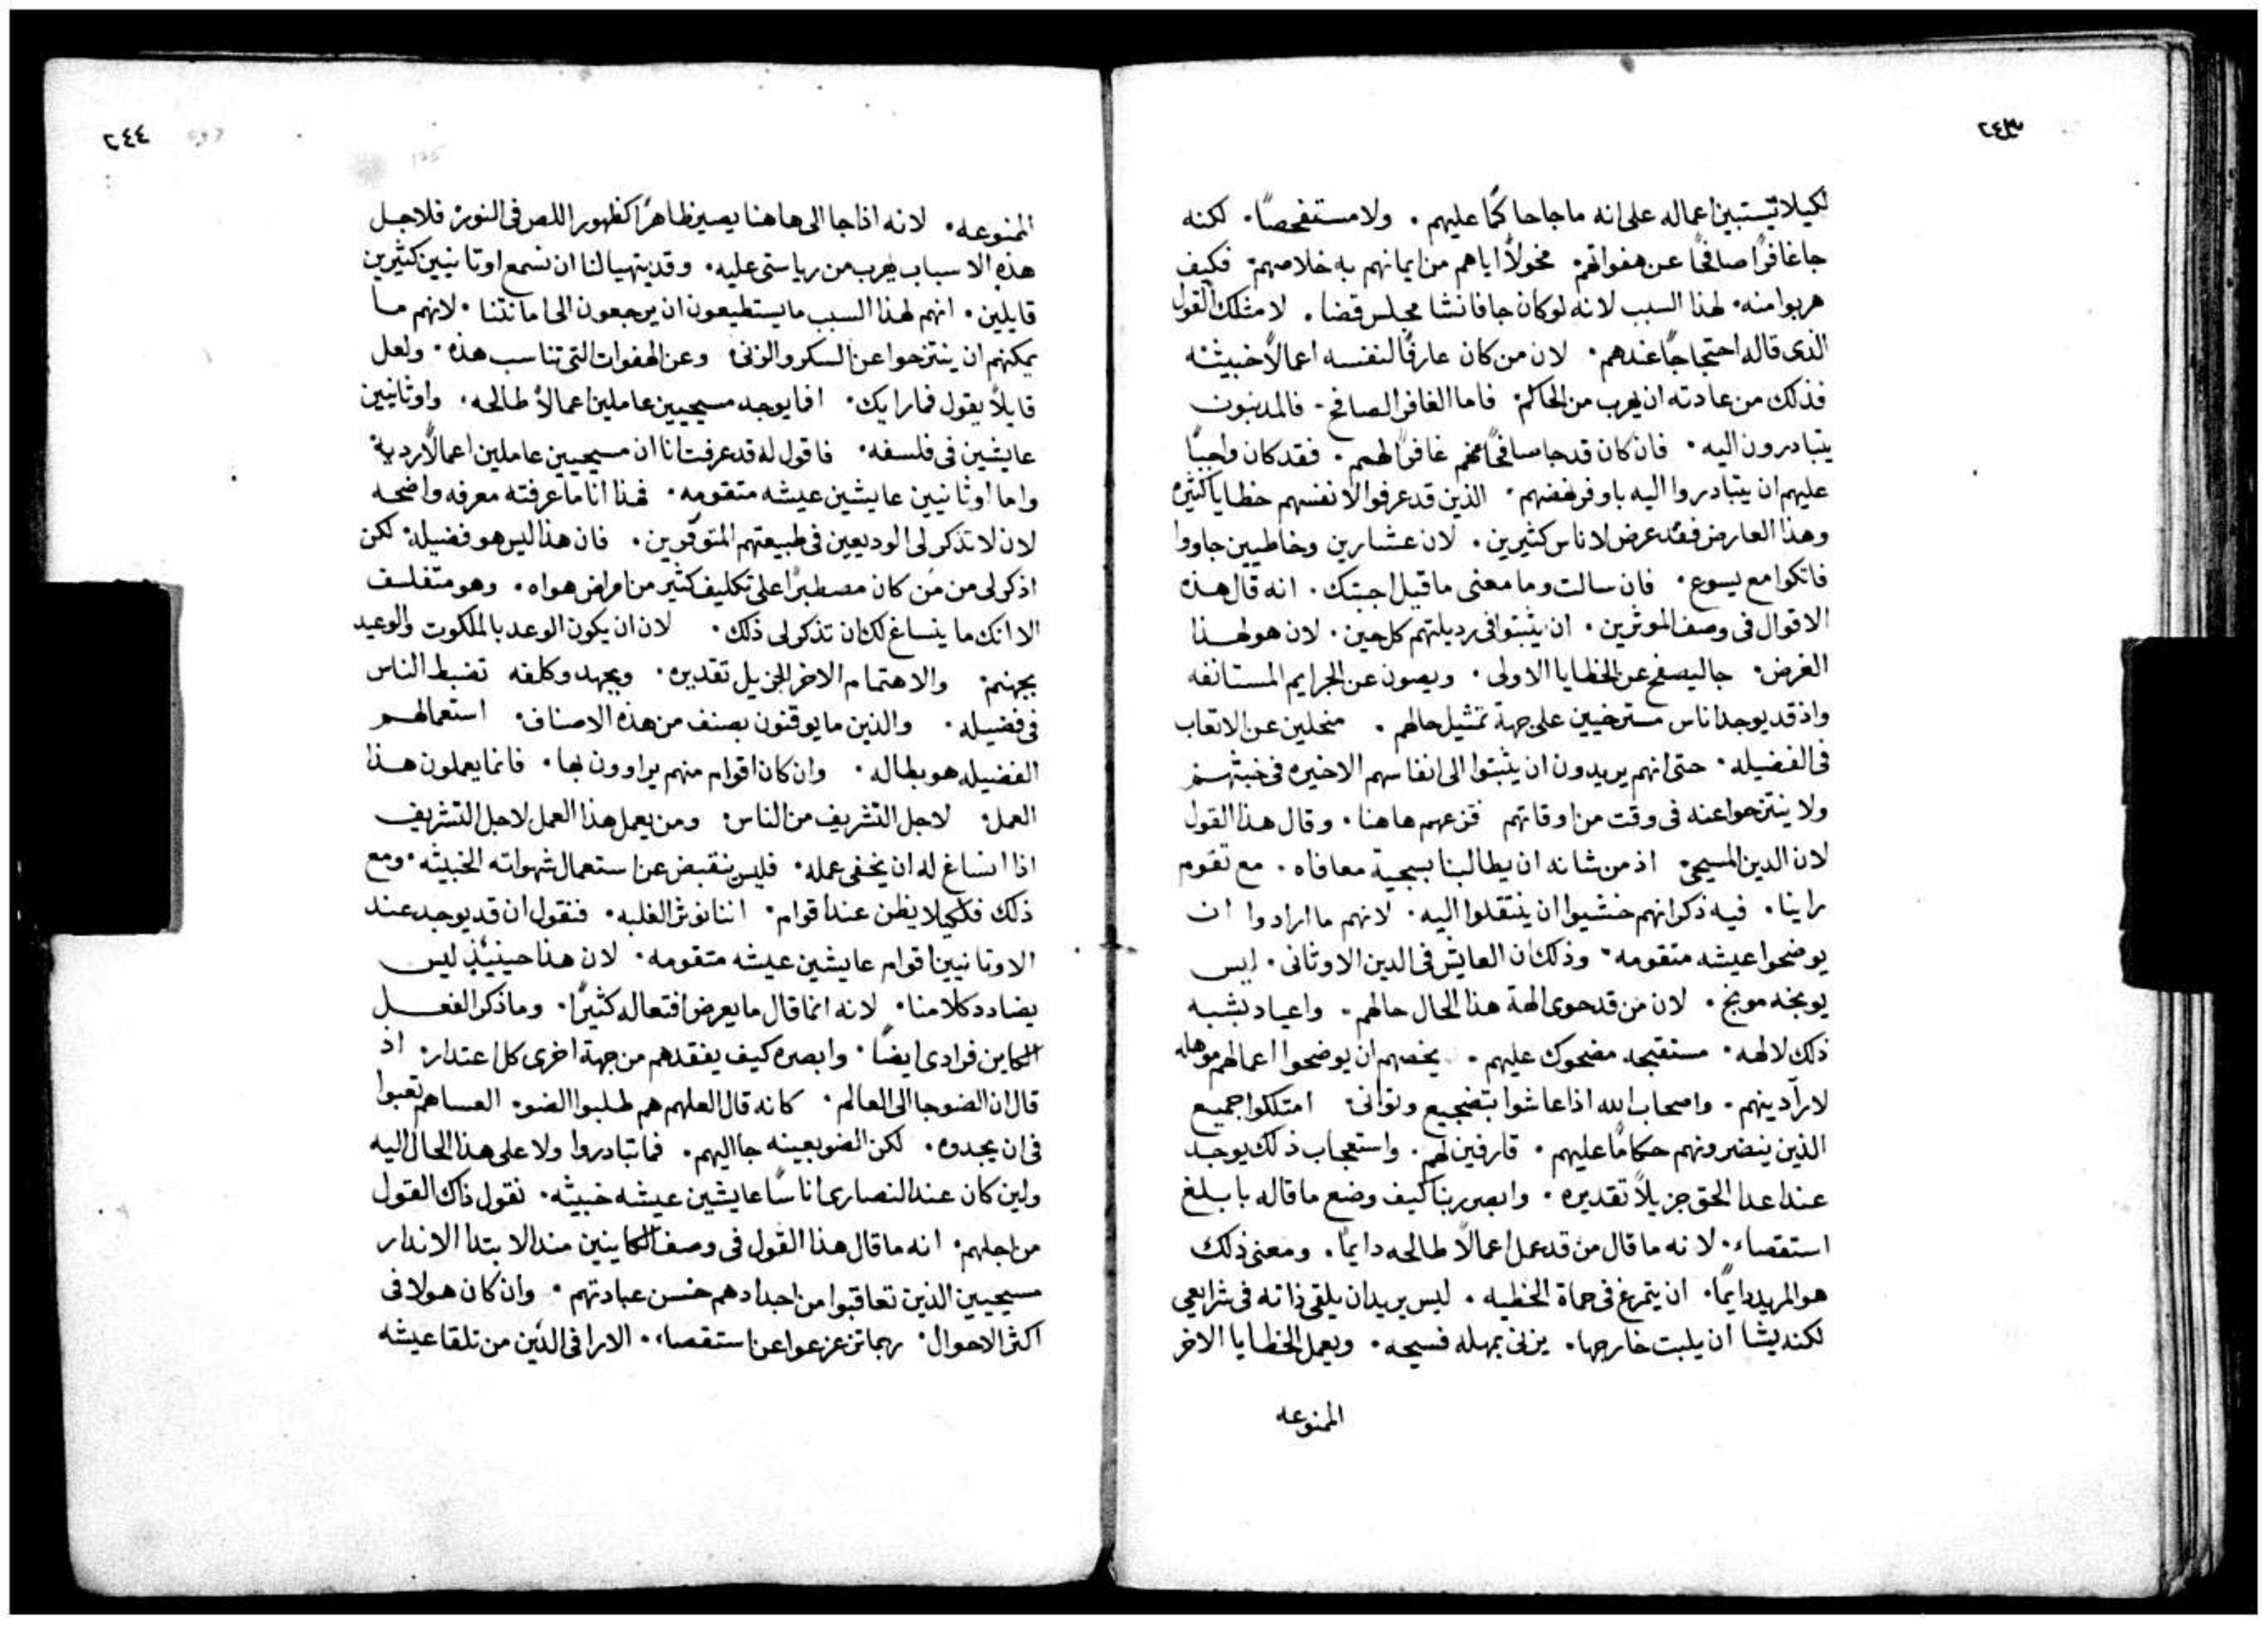 ٢٤٣
لكيلا تستبين اعماله على انه ما جا حاكمًا عليهم ٠ ولا مستفحصًا ٠ لكنه
جا غافرًا صافحًا عن هفواتهم ٠ مخولاً اياهم من ايمانهم به خلاصهم ٠ فكيف
هربوا منه ٠ لهذا السبب لانه لو كان جا فانشا مجلس قضا ٠ لامتلك القول
الذى قاله احتجاجًا عندهم ٠ لان من كان عارفًا لنفسه اعمالاً خبيثه
فذلك من عادته ان يهرب من الحاكم ٠ فاما الغافر الصافح ٠ فالمدنبون
يتبادرون اليه ٠ فان كان قد جا صافحًا عنهم غافرًا لهم ٠ فقد كان واجبًا
عليهم ان يتبادروا اليه باوفر نهضهم ٠ الذين قد عرفوا لانفسهم خطايا كثيره
وهذا العارض فقد عرض لاناس كثيرين ٠ لان عشارين وخاطيين جاووا
فاتكوا مع يسوع ٠ فان سالت وما معنى ما قيل اجبتك ٠ انه قال هذه
الاقوال فى وصف الموثرين ٠ ان يثبتوا فى رديلتهم كل حين ٠ لان هو لهذا
الغرض ٠ جا ليصفح عن الخطايا الاولى ٠ ويصون عن الجرايم المستانفه
واذ قد يوجد اناس مسترخيين على جهة تمثيل حالهم ٠ منحلين عن الاتعاب
فى الفضيله ٠ حتى انهم يريدون ان يثبتوا الى انفاسهم الاخيره فى خبثهم
ولا ينتزحوا عنه فى وقت من اوقاتهم قزعهم هاهنا ٠ وقال هذا القول
لان الدين المسيحى ٠ اذ من شانه ان يطالبنا بسجية معافاه ٠ مع تقوم
راينا ٠ فيه ذكر انهم خشيوا ان ينتقلوا اليه ٠ لانهم ما ارادوا ان
يوضحوا عيشه متقومه ٠ وذلك ان العايش فى الدين الاوثانى ٠ ليس
يوبخه موبخ ٠ لان من قد حوى الهة هذا الحال حالهم ٠ واعياد بشبه
ذلك لالهه ٠ مستقبحه مضحوك عليهم ٠ يخصهم ان يوضحوا اعمالهم موهله
لارآ دينهم ٠ واصحاب الله اذا عاشوا بتضجيع وتوانى ٠ امتلكوا جميع
الذين ينضرونهم حكامًا عليهم ٠ قارفين لهم ٠ واستعجاب ذلك يوجد
عند اعدا الحق جزيلاً تقديره ٠ وابصر ربنا كيف وضع ما قاله بابلغ
استقصاء ٠ لانه ما قال من قد عمل اعمالاً طالحه دايمًا ٠ ومعنى ذلك
هو المريد دايمًا ٠ ان يتمرغ فى حماة الخطيه ٠ ليس يريد ان يلقى ذاته فى شرايعى
لكنه يشا ان يلبث خارجها ٠ يزنى بمهله فسيحه ٠ ويعمل الخطايا الاخر
الممنوعه
٢٤٤
الممنوعه ٠ لانه اذا جا الى هاهنا يصير ظاهرًا كظهور اللص فى النور ٠ فلاجل
هذه الاسباب يهرب من رياستى عليه ٠ وقد يتهيا لنا ان نسمع اوتانيين كثيرين
قايلين ٠ انهم لهذا السبب ما يستطيعون ان يرجعون الى امانتنا ٠ لانهم ما
يمكنهم ان ينتزحوا عن السكر والزنى ٠ وعن الهفوات التى تناسب هذه ٠ ولعل
قايلاً يقول فما رايك ٠ افما يوجد مسيحيين عاملين اعمالاً طالحه ٠ واوثانيين
عايشين فى فلسفه ٠ فاقول له قد عرفت انا ان مسيحيين عاملين اعمالاً رديه
واما اوثانيين عايشين عيشه متقومه ٠ فهذا انا ما عرفته معرفه واضحه
لان لا تذكر لى الوديعين فى طبيعتهم المتوقرين ٠ فان هذا ليس هو فضيله ٠ لكن
اذكر لى من من كان مصطبرًا على تكليف كثير من امراض هواه ٠ وهو متفلسف
الا انك ما ينساغ لك ان تذكر لى ذلك ٠ لان ان يكون الوعد بالملكوت والوعيد
بجهنم ٠ والاهتمام الاخر الجزيل تقديره ٠ وبجهد وكلفه تضبط الناس
فى فضيله ٠ والذين ما يوقنون بصنف من هذه الاصناف ٠ استعمالهم
الفضيله هو بطاله ٠ وان كان اقوام منهم يراوون بها ٠ فانما يعملون هذا
العمل ٠ لاجل التشريف من الناس ٠ ومن يعمل هذا العمل لاجل التشريف
اذا انساغ له ان يخفى عمله ٠ فليس ينقبض عن استعمال شهواته الخبيثه ٠ ومع
ذلك فلكيلا يظن عند اقوام ٠ اننا نوثر الغلبه ٠ فنقول ان قد يوجد عند
الاوتانيين اقوام عايشين عيشه متقومه ٠ لان هذا حينيذٍ ليس
يضادد كلامنا ٠ لانه انما قال ما يعرض افتعاله كثيرًا ٠ وما ذكر الفعل
الكاين فرادى ايضًا ٠ وابصره كيف يفقدهم من جهة اخرى كل اعتدار ٠ اذ
قال ان الضو جا الى العالم ٠ كانه قال العلهم هم طلبوا الضو ٠ العساهم تعبوا
فى ان يجدوه ٠ لكن الضو بعينه جا اليهم ٠ فما تبادروا ولا على هذا الحال اليه
ولين كان عند النصارى اناسًا عايشين عيشه خبيثه ٠ نقول ذاك القول
من اجلهم ٠ انه ما قال هذا القول فى وصف الكاينين مند الابتدا الاندار
مسيحيين الذين تعاقبوا من اجدادهم حسن عبادتهم ٠ وان كان هولا فى
اكثر الاحوال ٠ ربما تزعزعوا عن استقصاء ٠ الارا فى الدين من تلقا عيشه